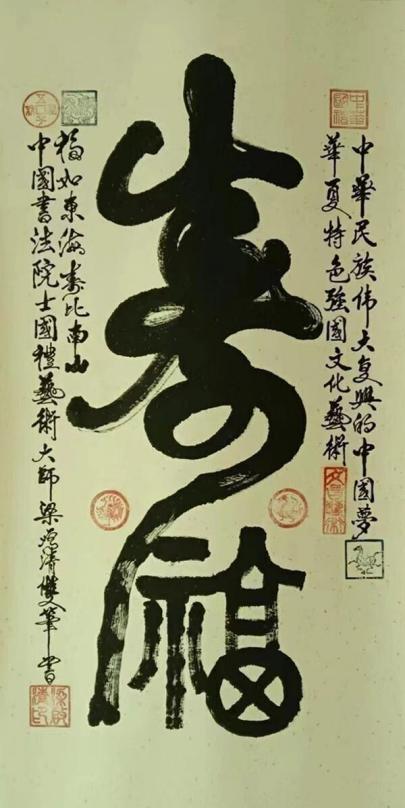 中華民族伟大复興的中國夢
華夏特色强國文化藝術
寿福
福如東海寿比南山
中國書法院士國禮藝術大師梁濤雙筆書